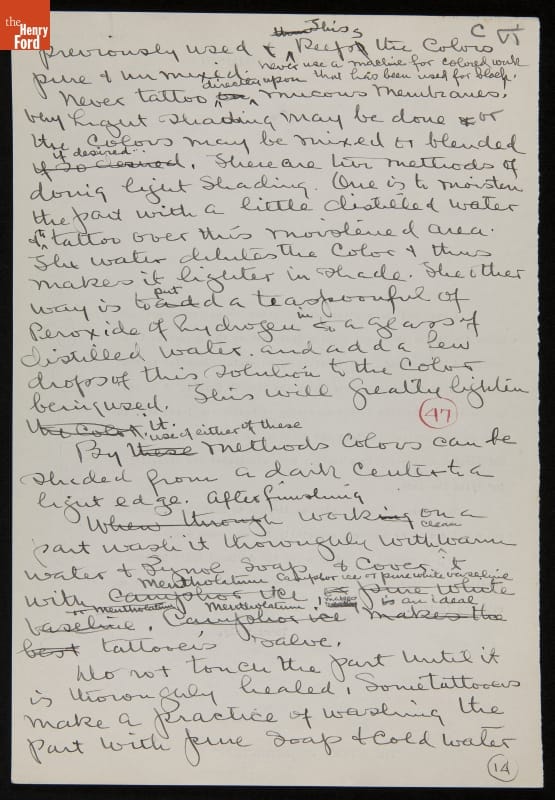 the
Henry
Ford
C VI
This
previously used & keeps the Colors
never use a machine for colored work
pure & unmixed.
that has been used for black.
directly upon
Never tattoo on mucous membranes.
very light shading may be done or
the Colors may be mixed or blended
if desired.
if so desired. There are two methods of
doing light shading. One is to moisten
the part with a little distilled water
& tattoo over this moistened area.
The water dilutes the Color & thus
makes it lighter in shade. The other
put
way is to add a teaspoonful of
in
Peroxide of hydrogen to a glass of
distilled water and add a few
drops of this solution to the color
being used. This will greatly lighten
47
the color it.
use of either of these
By these methods Colors can be
shaded from a dark center to a
light edge. After finishing
When through working on a
clean
part wash it thoroughly with warm
water & Synol Soap & Cover it
Mentholatum Camphor ice or pure white vaseline
with Camphor ice or pure white
or mentholatum Mentholatum makes is an ideal
vaseline. Camphor ice makes the
best tattooers salve.
Do not touch the part until it
is thoroughly healed. Some tattooers
make a practice of washing the
part with pure soap & cold water
14